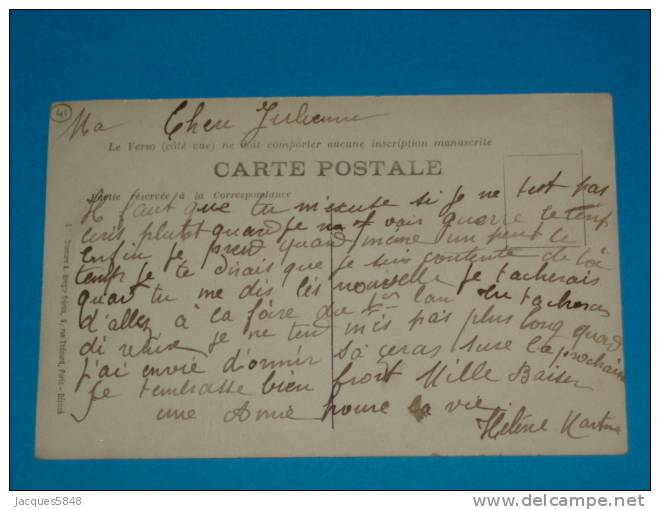 41
Ma Chere Julienne
Le Verso (côté vue) ne doit comporter aucune inscription manuscrite
CARTE POSTALE
Partie réservée à la Correspondance
Il faut que tu mexcuse si je ne test pas
ecris plutot quand je na vair guerre le temp
enfin je prend quand meme un peut le
temp je te dirais que je suis contente de la
quart tu me dis les nouvelle je tacherais
d'allez à la foire du 1er lan tu tacheras
di venir je ne ten mis pas plus long quand
j'ai envie d'ormir sa seras sure la prochaine
je tembrasse bien frort Mille Baiser
une Amie poure la vie
Hélène Martin
Jacques5848
delcampe.net